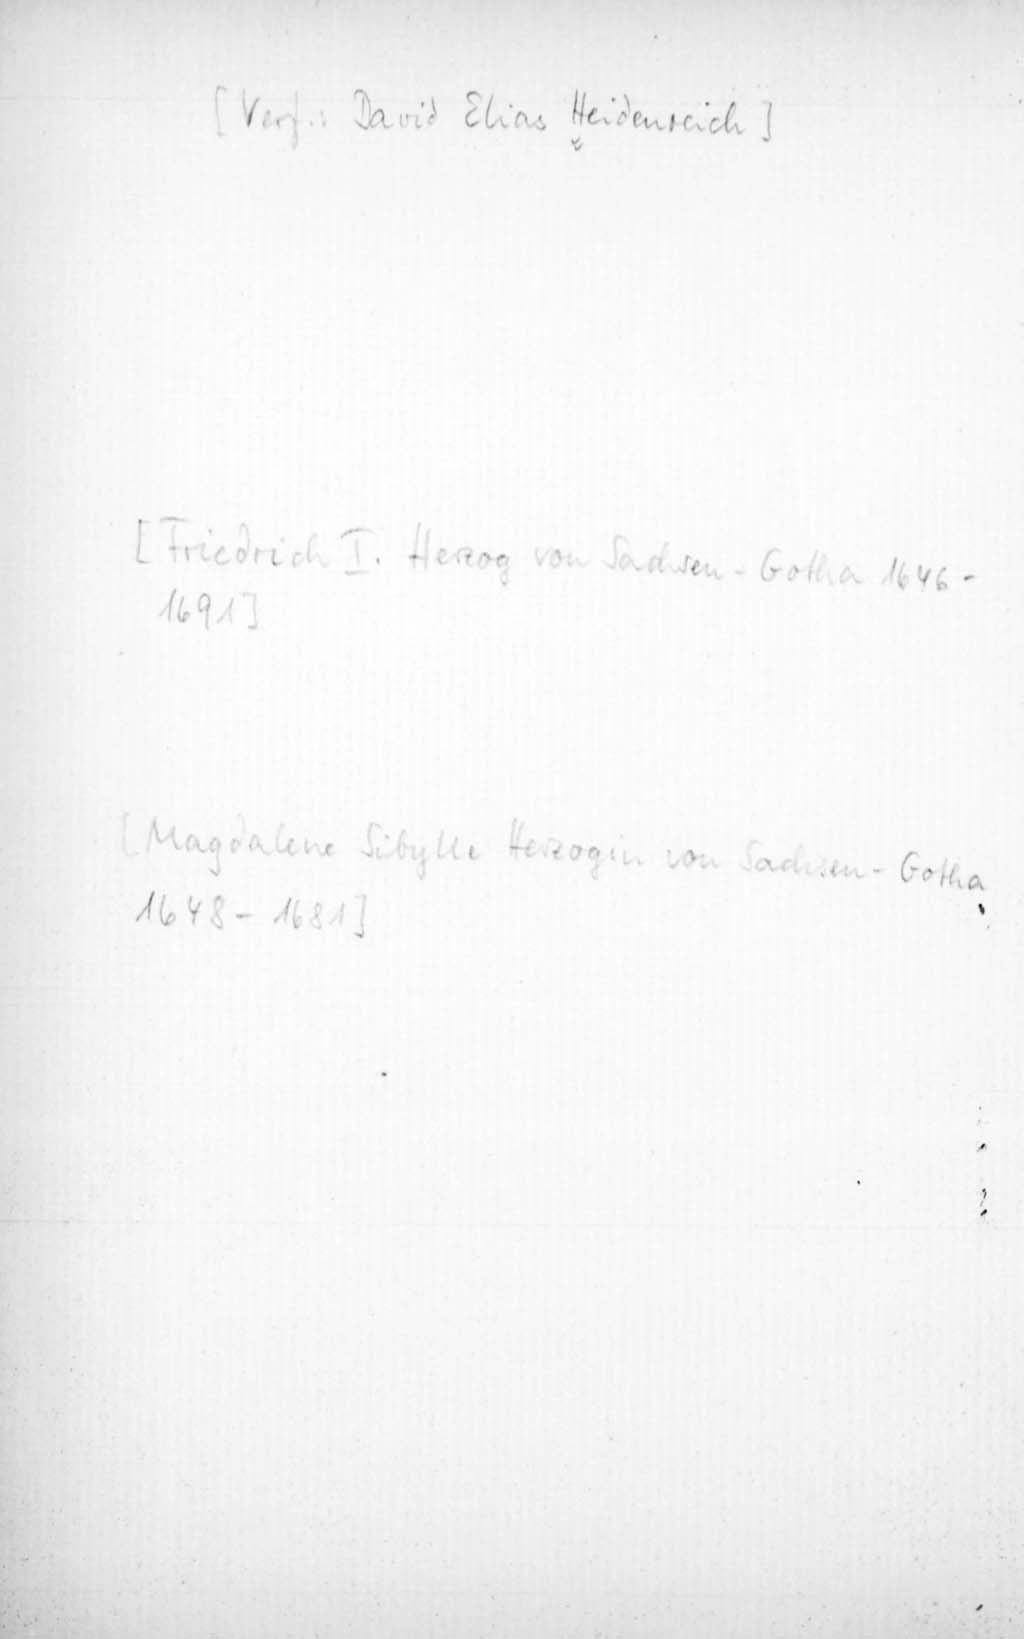 [Verf.: David Elias Heidenreich]
[Friedrich I. Herzog von Sachsen-Gotha 1646-
1691]
[Magdalene Sibylle Herzogin von Sachsen-Gotha
1648-1681]